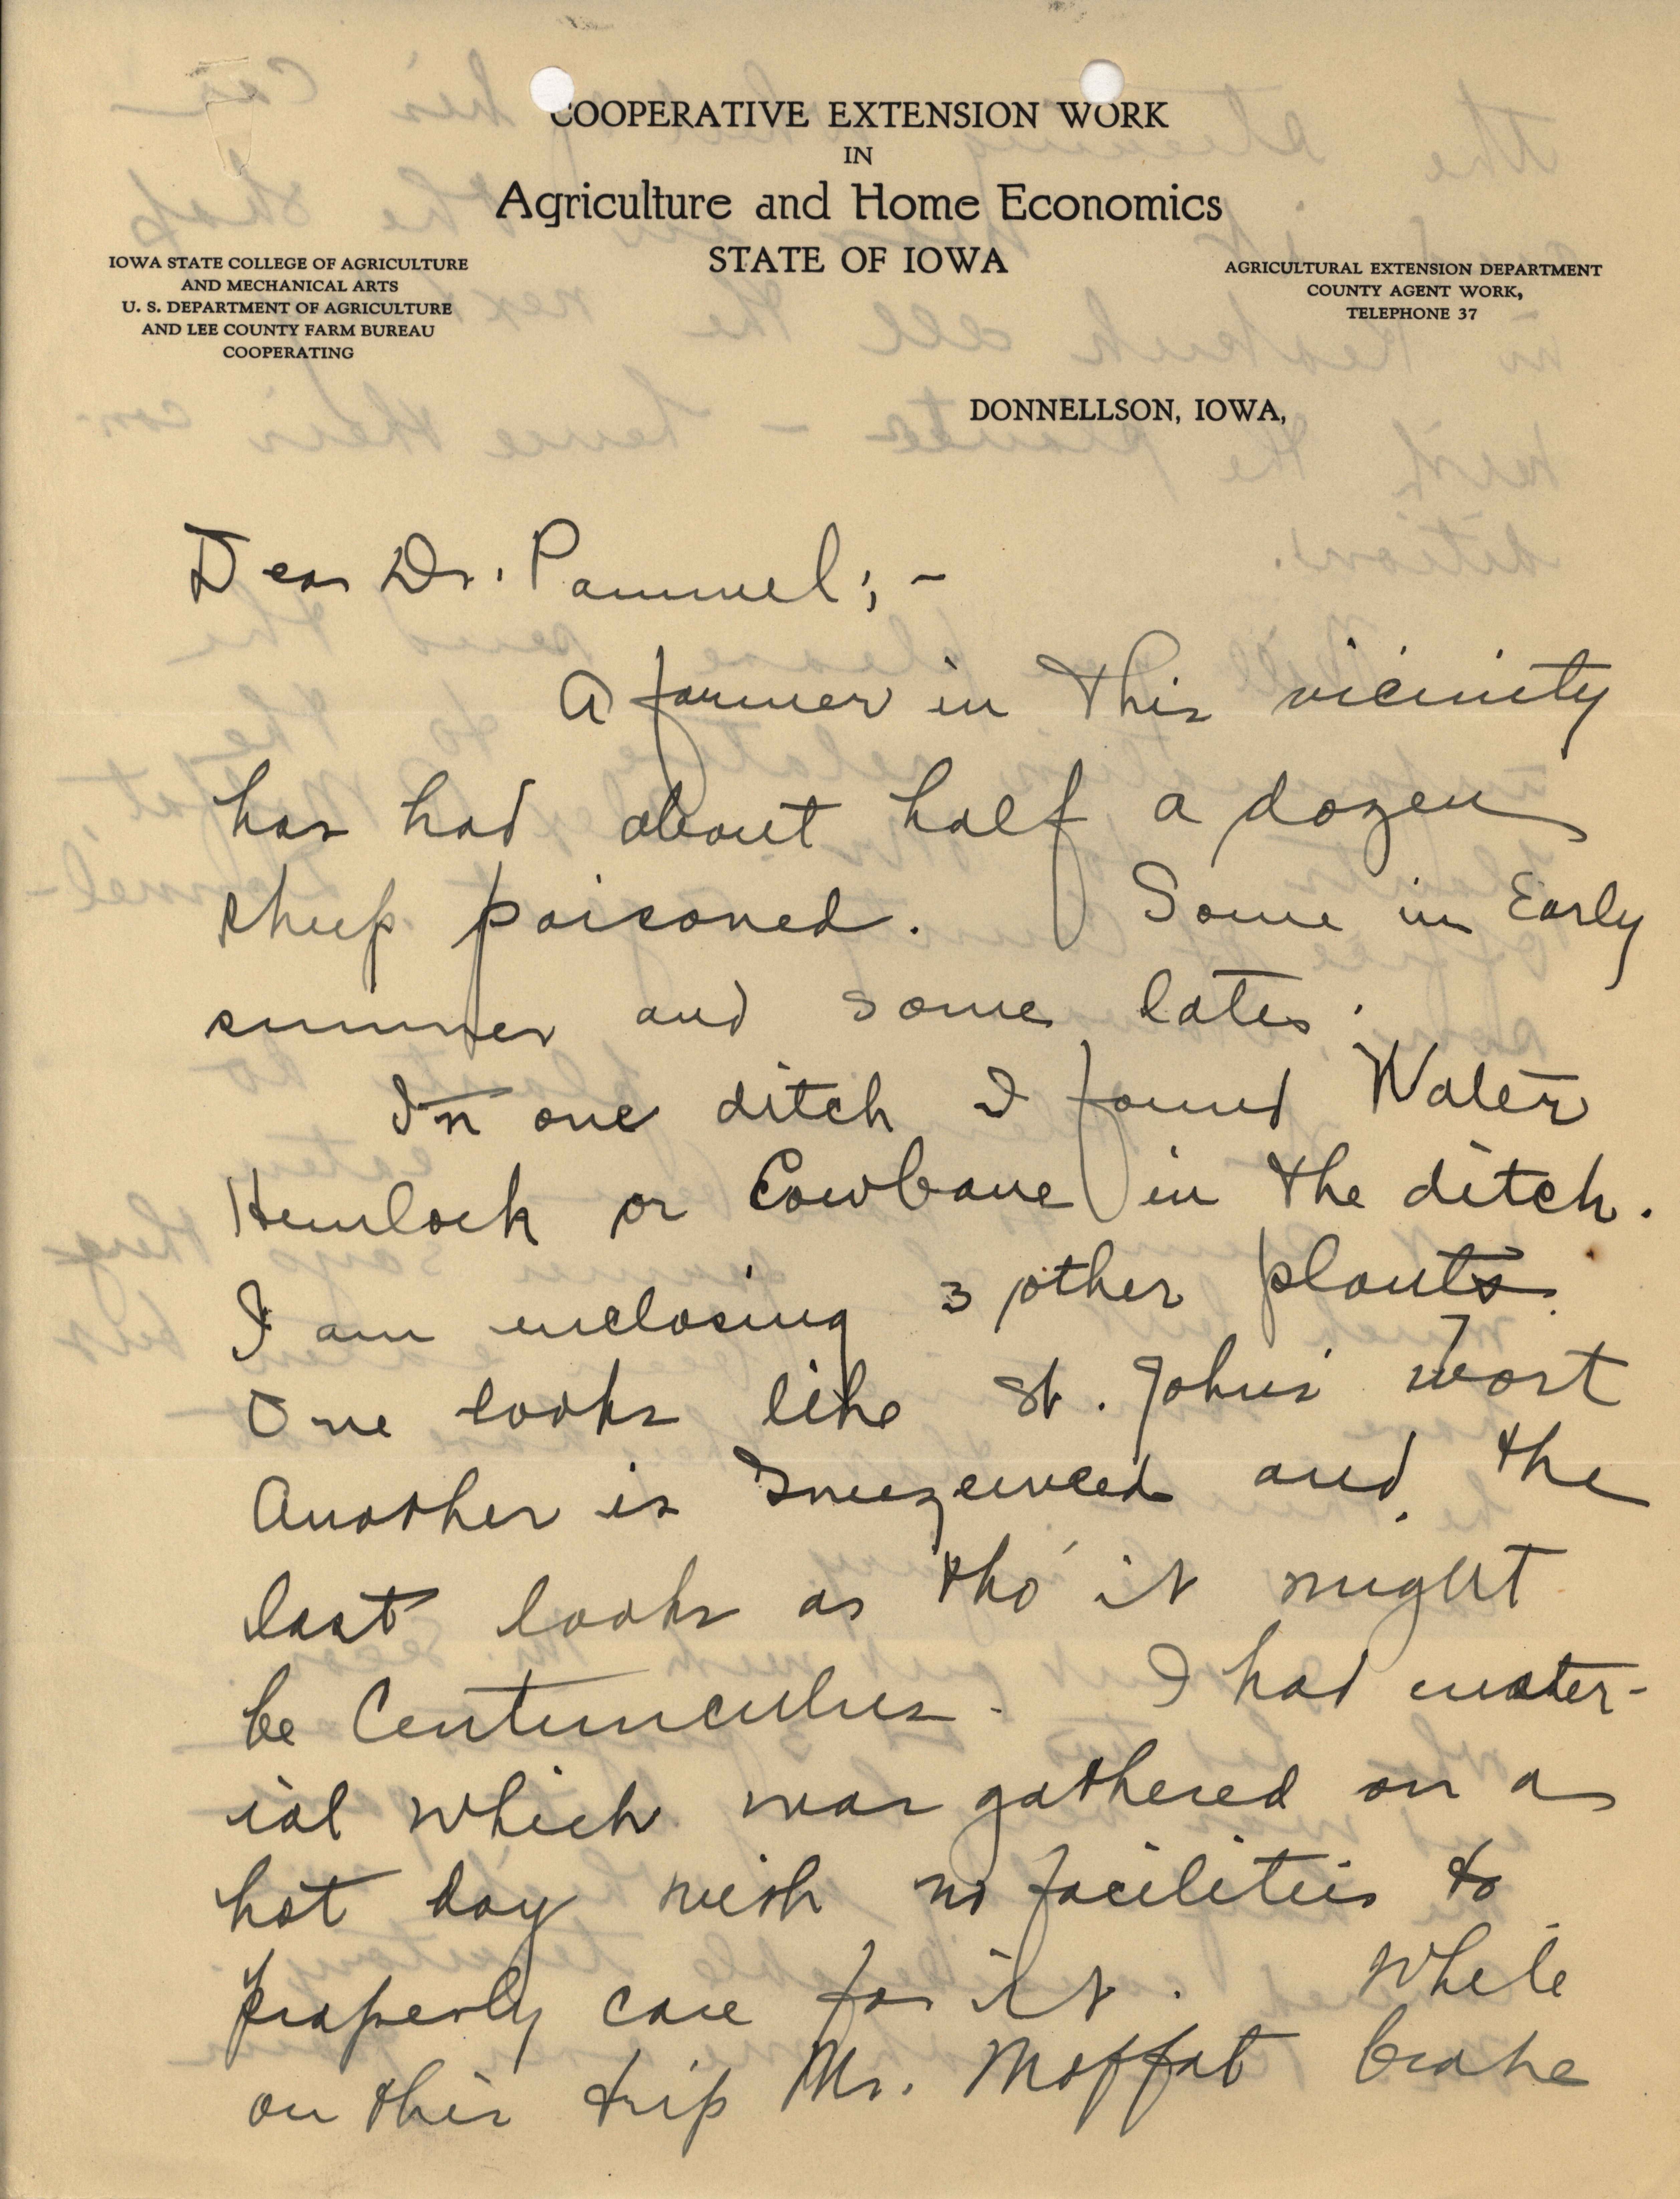 COOPERATIVE EXTENSION WORK
IN
Agriculture and Home Economics
STATE OF IOWA
IOWA STATE COLLEGE OF AGRICULTURE
AND MECHANICAL ARTS
U. S. DEPARTMENT OF AGRICULTURE
AND LEE COUNTY FARM BUREAU
COOPERATING
AGRICULTURAL EXTENSION DEPARTMENT
COUNTY AGENT WORK,
TELEPHONE 37
DONNELLSON, IOWA,
Dear Dr. Pammel; -
A farmer in this vicinity
has had about half a dozen
sheep poisoned. Some in Early
summer and some later.
In one ditch I found Water
Hemlock or Cowbane in the ditch.
I am enclosing 3 other plants.
One looks like St. Johns' wort
Another is Sneezeweed and the
last looks as tho' it might
be Centunculus. I had mater-
ial which was gathered on a
hot day with no facilities to
properly care for it. While
on this trip Mr. Moffat broke